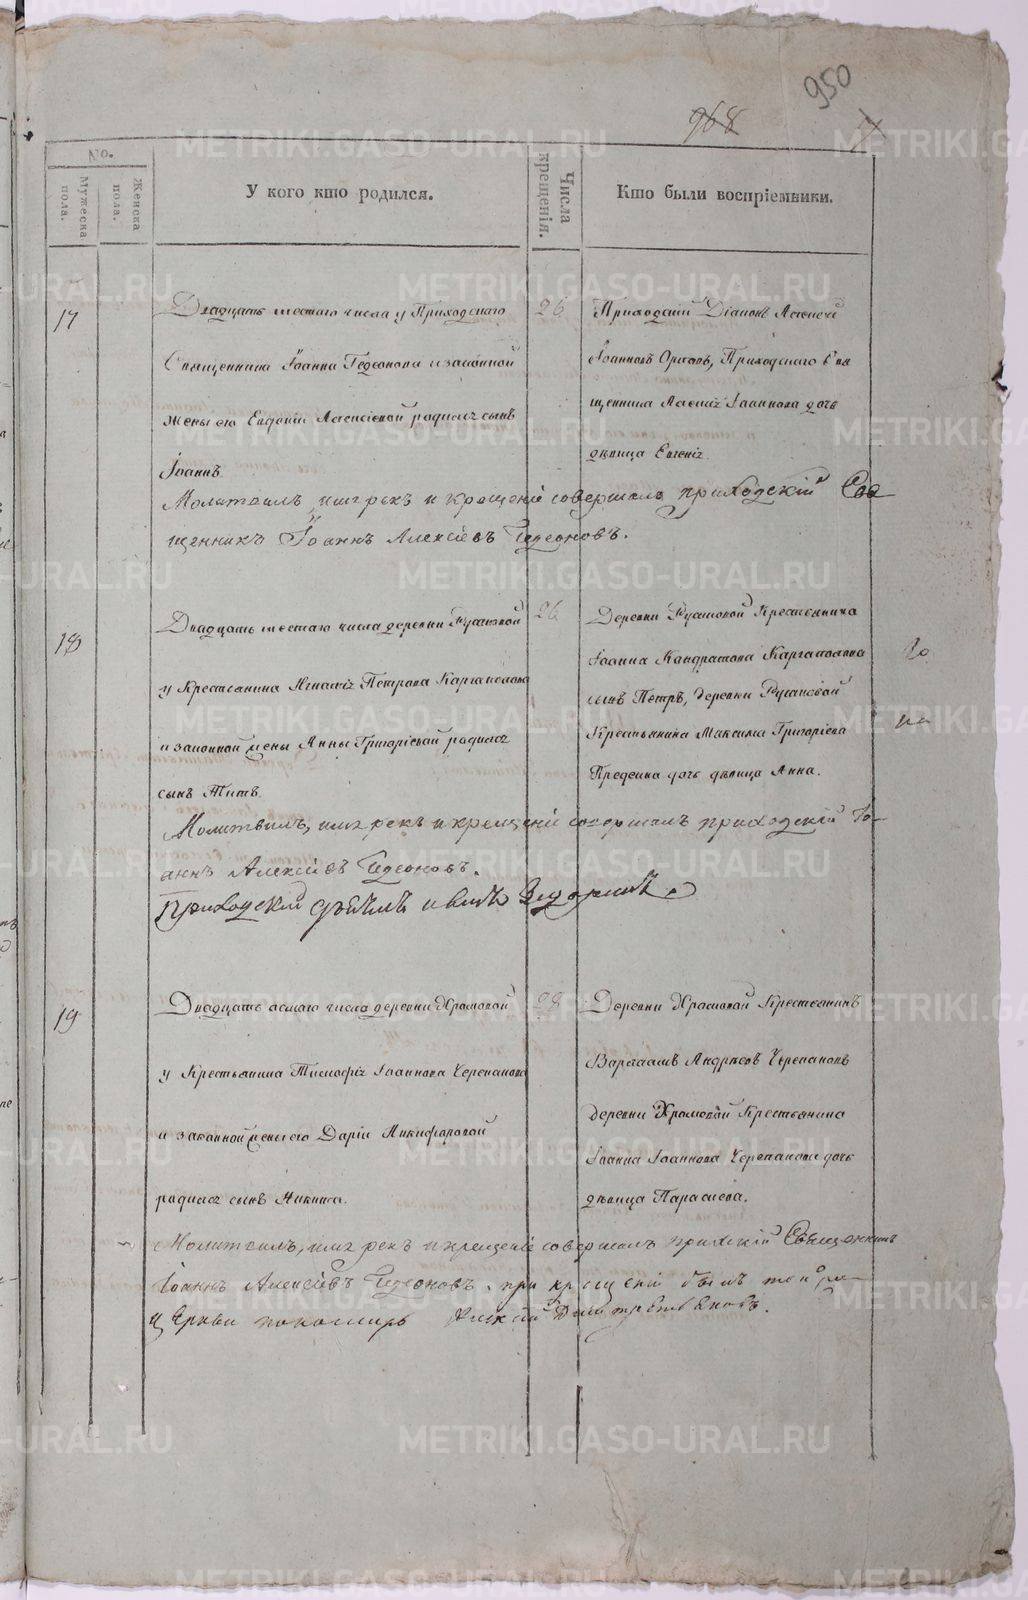 950
968
No.
Мужеска пола.
Женска пола.
У кого кто родился.
Числа крещенія.
Кто были воспріемники.
17
Двадцать шестаго числа у Приходскаго
Священника Іоанна Гедеонова и законной
жены его Евдокіи Алексіевой родился сынъ
Іоаннъ.
26
Приходскій Діаконъ Алексей
Іоанновъ Орловъ, Приходскаго Свя
щенника Алексія Іоаннова дочь
дѣвица Евгенія.
Молитвилъ, имя рекъ и крещеніе совершалъ приходскій Свя
щенникъ Іоаннъ Алексіевъ Гедеоновъ.
18
Двадцать шестаго числа деревни Русаковой
у Крестьянина Игнатія Петрова Каргаполова
и законной жены Анны Григорьевой родился
сынъ Титъ.
26
Деревни Русаковой Крестьянина
Іоанна Кондратова Каргаполова
сынъ Петръ, деревни Русаковой
Крестьянина Максима Григорьева
дочь дѣвица Анна.
Молитвилъ, имя рекъ и крещеніе совершалъ приходскій Іо-
аннъ Алексіевъ Гедеоновъ.
Приходскій
19
Двадцать осмаго числа деревни Храмовой
у Крестьянина Тимофѣя Іоаннова Черепанова
и законной жены его Даріи Никифоровой
родился сынъ Никита.
28
Деревни Храмовой Крестьянинъ
Варлаамъ Андреевъ Черепановъ
деревни Храмовой Крестьянина
Іоанна Іоаннова Черепанова дочь
дѣвица Параскева.
Молитвилъ, имя рекъ и крещеніе совершалъ Священникъ
Іоаннъ Алексіевъ Гедеоновъ. при крещеніи былъ тоя же
церкви пономарь Алексій
METRIKI.GASO-URAL.RU